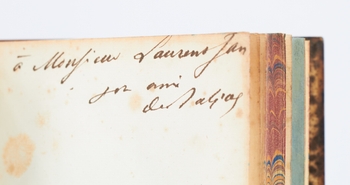 à Monsieur Laurent Jan
son ami
de Balzac